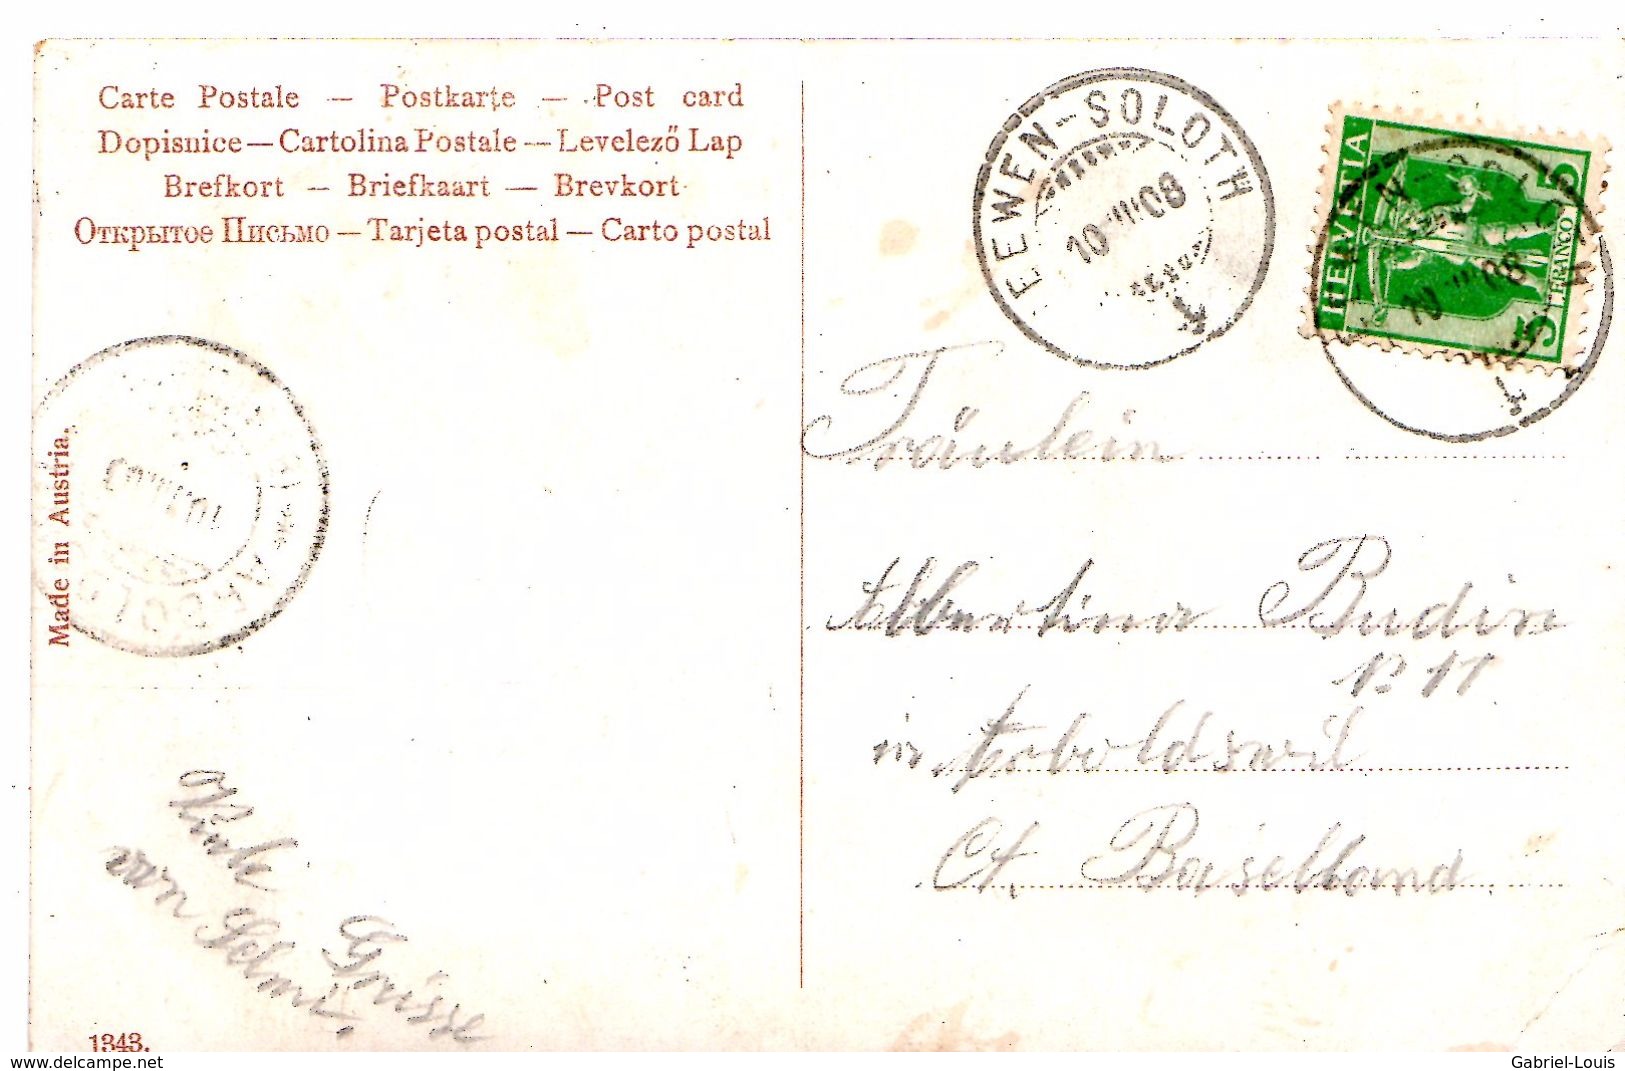 Carte Postale — Postkarte — Post card
Dopisnice — Cartolina Postale — Levelező Lap
Brefkort — Briefkaart — Brevkort
Открытое Письмо — Tarjeta postal — Carto postal
EEWEN-SOLOTH
10 VIII 08
HELVETIA
5 LE FRANCO 5
Made in Austria.
Fräulein
Albertina Budin
in Arboldswil
Ct. Baselland.
Grüsse
von Selmi.
1343.
www.delcampe.net
Gabriel-Louis